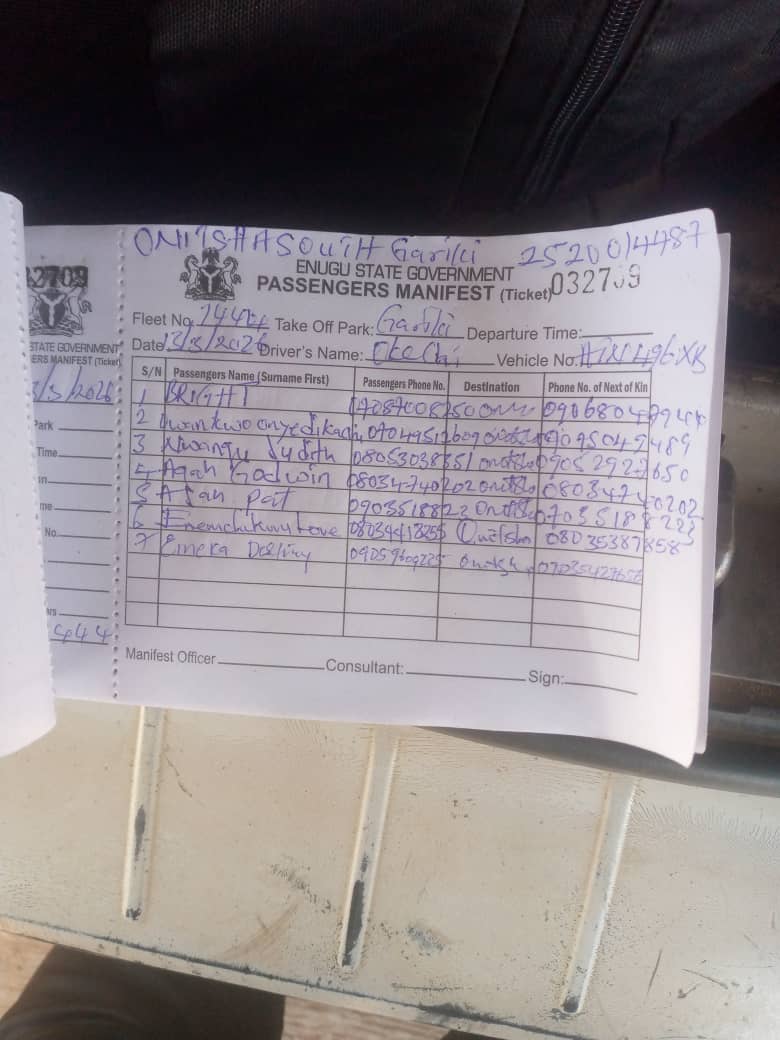 ONITSHA SOUTH Gariki 2520014487
ENUGU STATE GOVERNMENT
PASSENGERS MANIFEST (Ticket) 032709
Fleet No. Take Off Park: Gariki Departure Time:
Date 13/3/2026 Driver's Name: Oke Chi Vehicle No.
S/N Passengers Name (Surname First) Passengers Phone No. Destination Phone No. of Next of Kin
1 BRIGHT
2 onyedikachi 09095049489
3 Nwangu Judith 08053038351 Onitsha 09052927650
4 Agah Godwin 08034740202 Onitsha 08034740202
5 Afan Pat 0903518822 Onitsha 07035188223
6 08039418255 Onitsha 08035387858
7 Emeka Destiny 09059609225 Onitsha 07035427658
Manifest Officer Consultant: Sign:
32709
STATE GOVERNMENT
ERS MANIFEST (Ticket
3/3/2026
Park
Time
No.